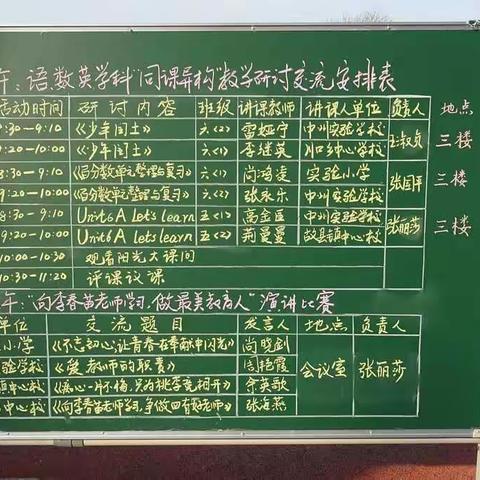 午：语、数、英学科"同课异构"教学研讨交流安排表
活动时间 研讨内容 班级 讲课教师 讲课人单位 负责人 地点
8:30-9:10 《少年闰土》 六<2> 雷娅宁 中州实验学校
9:20-10:00 《少年闰土》 六<1> 李继英 中心小学校 三楼
8:30-9:10 《百分数单元整理与复习》 六<1> 尚鸿凌 实验小学 张国平 三楼
9:20-10:00 《百分数单元整理与复习》 六<2> 张永乐 中州实验学校
8:30-9:10 Unit6A Let's learn 五<1> 高金臣 中州实验学校 张丽莎 三楼
9:20-10:00 Unit6A Let's learn 五<2> 荆曼曼 故县镇中心校
10:00-10:30 观看阳光大课间
10:30-11:20 评课议课
午："向李春苗老师学习，做最美教育人"演讲比赛
单位 交流题目 发言人 地点 负责人
小学 《不忘初心，让青春在奉献中闪光》 尚晓剑
验学校 《爱，教师的职责》 周艳霞 会议室 张丽莎
镇中心校 《痴心一片终不悔，只为桃李竞相开》 余英歌
中心校 《向李春苗老师学习，争做四有好老师》 张海燕